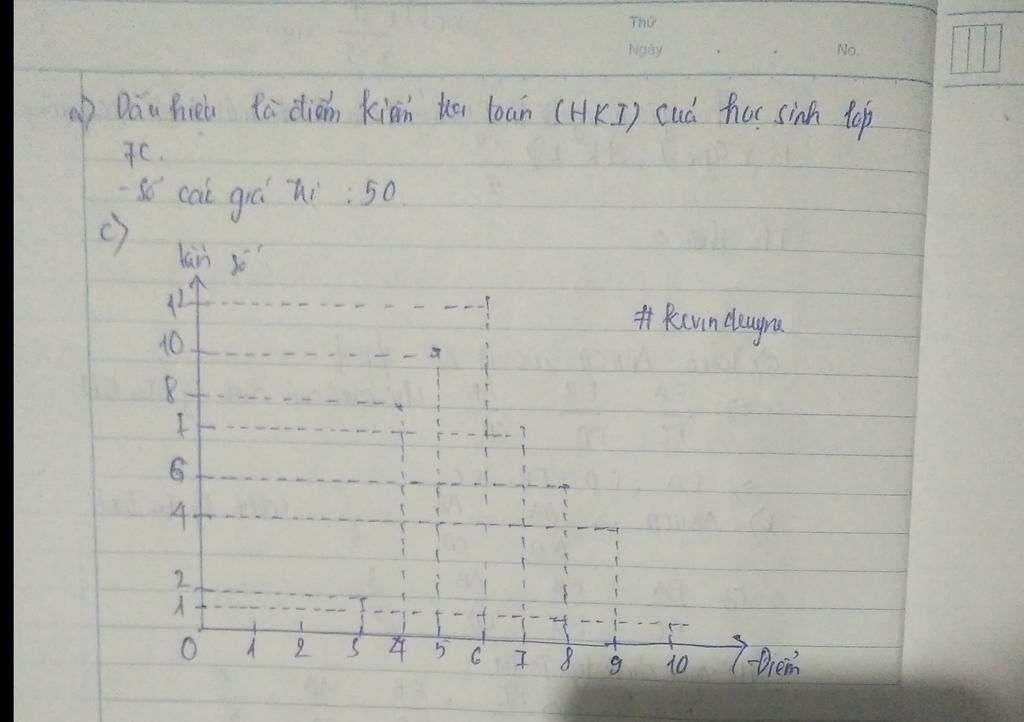 Thứ
Ngày . . No.
a) Dấu hiệu là điểm kiểm tra toán (HKI) cuả học sinh lớp
7C.
- Số các giá trị : 50
c)
tần số
12
10
8
7
6
4
2
1
0 1 2 3 4 5 6 7 8 9 10 Điểm